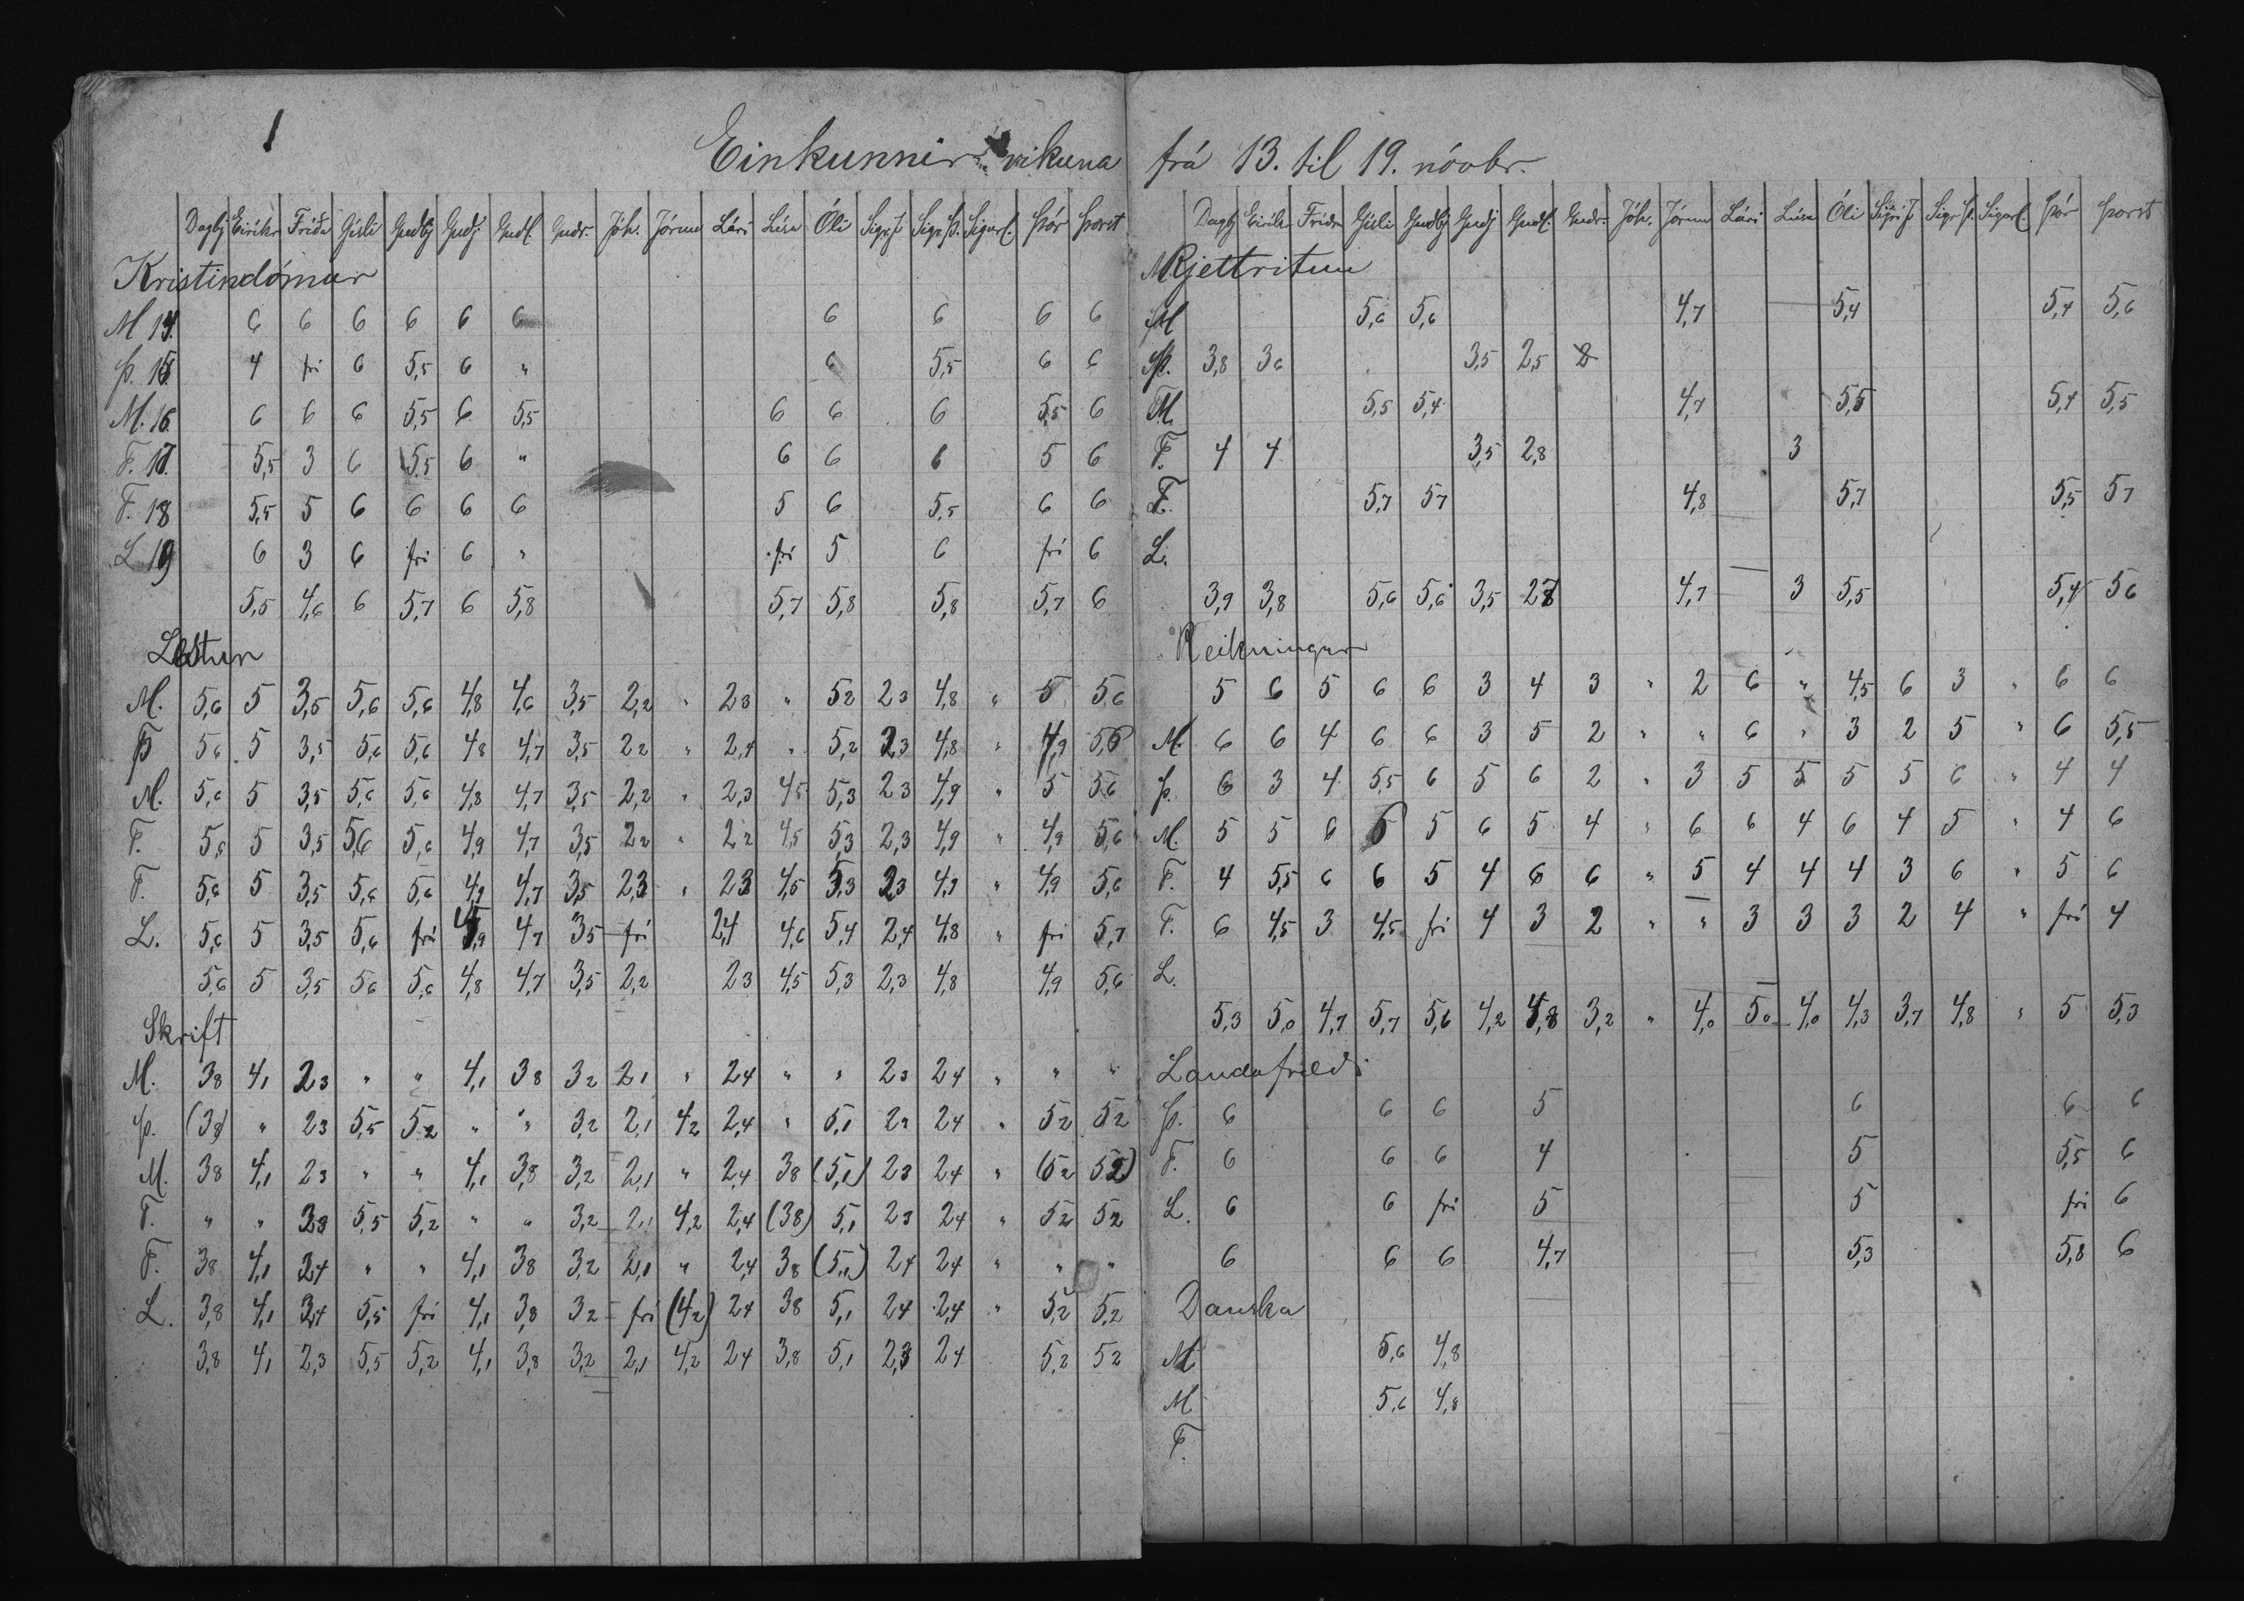 1
Einkunnir vikuna
Dagbj Eiríkr Fríða Gísli Guðbj Guðj Guðl. Guðr. Jóh. Jórunn Lári Lúsa Óli Sigr.J Sigr.Þ. Sigurl. Þór Þorst
Kristindómur
M 14. 6 6 6 6 6 6 6 6 6 6
Þ. 15. 4 frí 6 5,5 6 " 6 5,5 6 6
M. 16. 6 6 6 5,5 6 5,5 6 6 6 5,5 6
F. 17. 5,5 3 6 5,5 6 " 6 6 6 5 6
F. 18 5,5 5 6 6 6 6 5 6 5,5 6 6
L 19 6 3 6 frí 6 " frí 5 6 frí 6
5,5 4,6 6 5,7 6 5,8 5,7 5,8 5,8 5,7 6
Lestur
M. 5,6 5 3,5 5,6 5,6 4,8 4,6 3,5 2,2 " 23 " 52 23 4,8 " 5 5,6
Þ 56 5 3,5 5,6 5,6 48 4,7 3,5 22 " 2,4 " 5,2 23 4,8 " 4,9 56
M. 5,6 5 3,5 5,6 5,6 4,8 4,7 3,5 2,2 " 2,3 45 5,3 23 4,9 " 5 56
F. 5,6 5 3,5 5,6 5,6 4,9 4,7 3,5 22 " 22 4,5 53 2,3 4,9 " 4,9 5,6
F. 5,6 5 3,5 5,6 5,6 4,9 4,7 3,5 2,3 " 23 4,5 5,3 23 4,9 " 4,9 5,6
L. 5,6 5 3,5 5,6 frí 4,9 47 35 frí 2,4 4,6 5,4 2,4 4,8 " frí 5,7
5,6 5 3,5 56 5,6 4,8 4,7 3,5 2,2 23 4,5 5,3 2,3 4,8 4,9 5,6
Skrift
M. 38 4,1 23 " " 4,1 38 32 21 " 24 " " 23 24 " " "
Þ. (38) " 23 5,5 52 " " 3,2 2,1 42 2,4 " 5,1 23 24 " 52 52
M. 38 4,1 23 " " 4,1 3,8 3,2 2,1 " 2,4 38 (5,1) 23 24 " (52 52)
F. " " 23 5,5 5,2 " " 3,2 2,1 4,2 2,4 (38) 5,1 23 24 " 52 52
F. 38 4,1 24 " " 4,1 38 3,2 2,1 " 2,4 38 (5,1) 24 24 " " "
L. 3,8 4,1 24 5,5 frí 4,1 3,8 32 frí (42) 24 38 5,1 24 2,4 " 5,2 5,2
3,8 4,1 2,3 5,5 5,2 4,1 3,8 3,2 2,1 4,2 24 3,8 5,1 2,3 24 5,2 52
frá 13. til 19. nóvbr.
Dagbj Eiríkr Fríða Gísli Guðbj Guðj Guðl. Guðr. Jóh. Jórunn Lári Lúsa Óli Sigr.J Sigr Þ. Sigurl Þór Þorst
Rjettritun
M 5,6 5,6 4,7 5,4 5,4 5,6
Þ. 3,8 36 3,5 2,5
M. 5,5 5,4 4,7 5,5 5,4 5,5
F. 4 4 3,5 2,8 3
F. 5,7 57 4,8 5,7 5,5 57
L.
3,9 3,8 5,6 5,6 3,5 27 4,7 3 5,5 5,4 56
Reikningur
5 6 5 6 6 3 4 3 " 2 6 " 4,5 6 3 " 6 6
M. 6 6 4 6 6 3 5 2 " " 6 " 3 2 5 " 6 5,5
Þ. 6 3 4 5,5 6 5 6 2 " 3 5 5 5 5 6 " 4 4
M. 5 5 6 6 5 6 5 4 " 6 6 4 6 4 5 " 4 6
F. 4 5,5 6 6 5 4 6 6 " 5 4 4 4 3 6 " 5 6
F. 6 4,5 3 4,5 frí 4 3 2 " " 3 3 3 2 4 " frí 4
L.
5,3 5,0 4,7 5,7 5,6 4,2 4,8 3,2 " 4,0 5,0 4,0 4,3 3,7 4,8 " 5 5,3
Landafræði
Þ. 6 6 6 5 6 6 6
F. 6 6 6 4 5 5,5 6
L. 6 6 frí 5 5 frí 6
6 6 6 4,7 5,3 5,8 6
Danska
M 5,6 4,8
M 5,6 4,8
F.